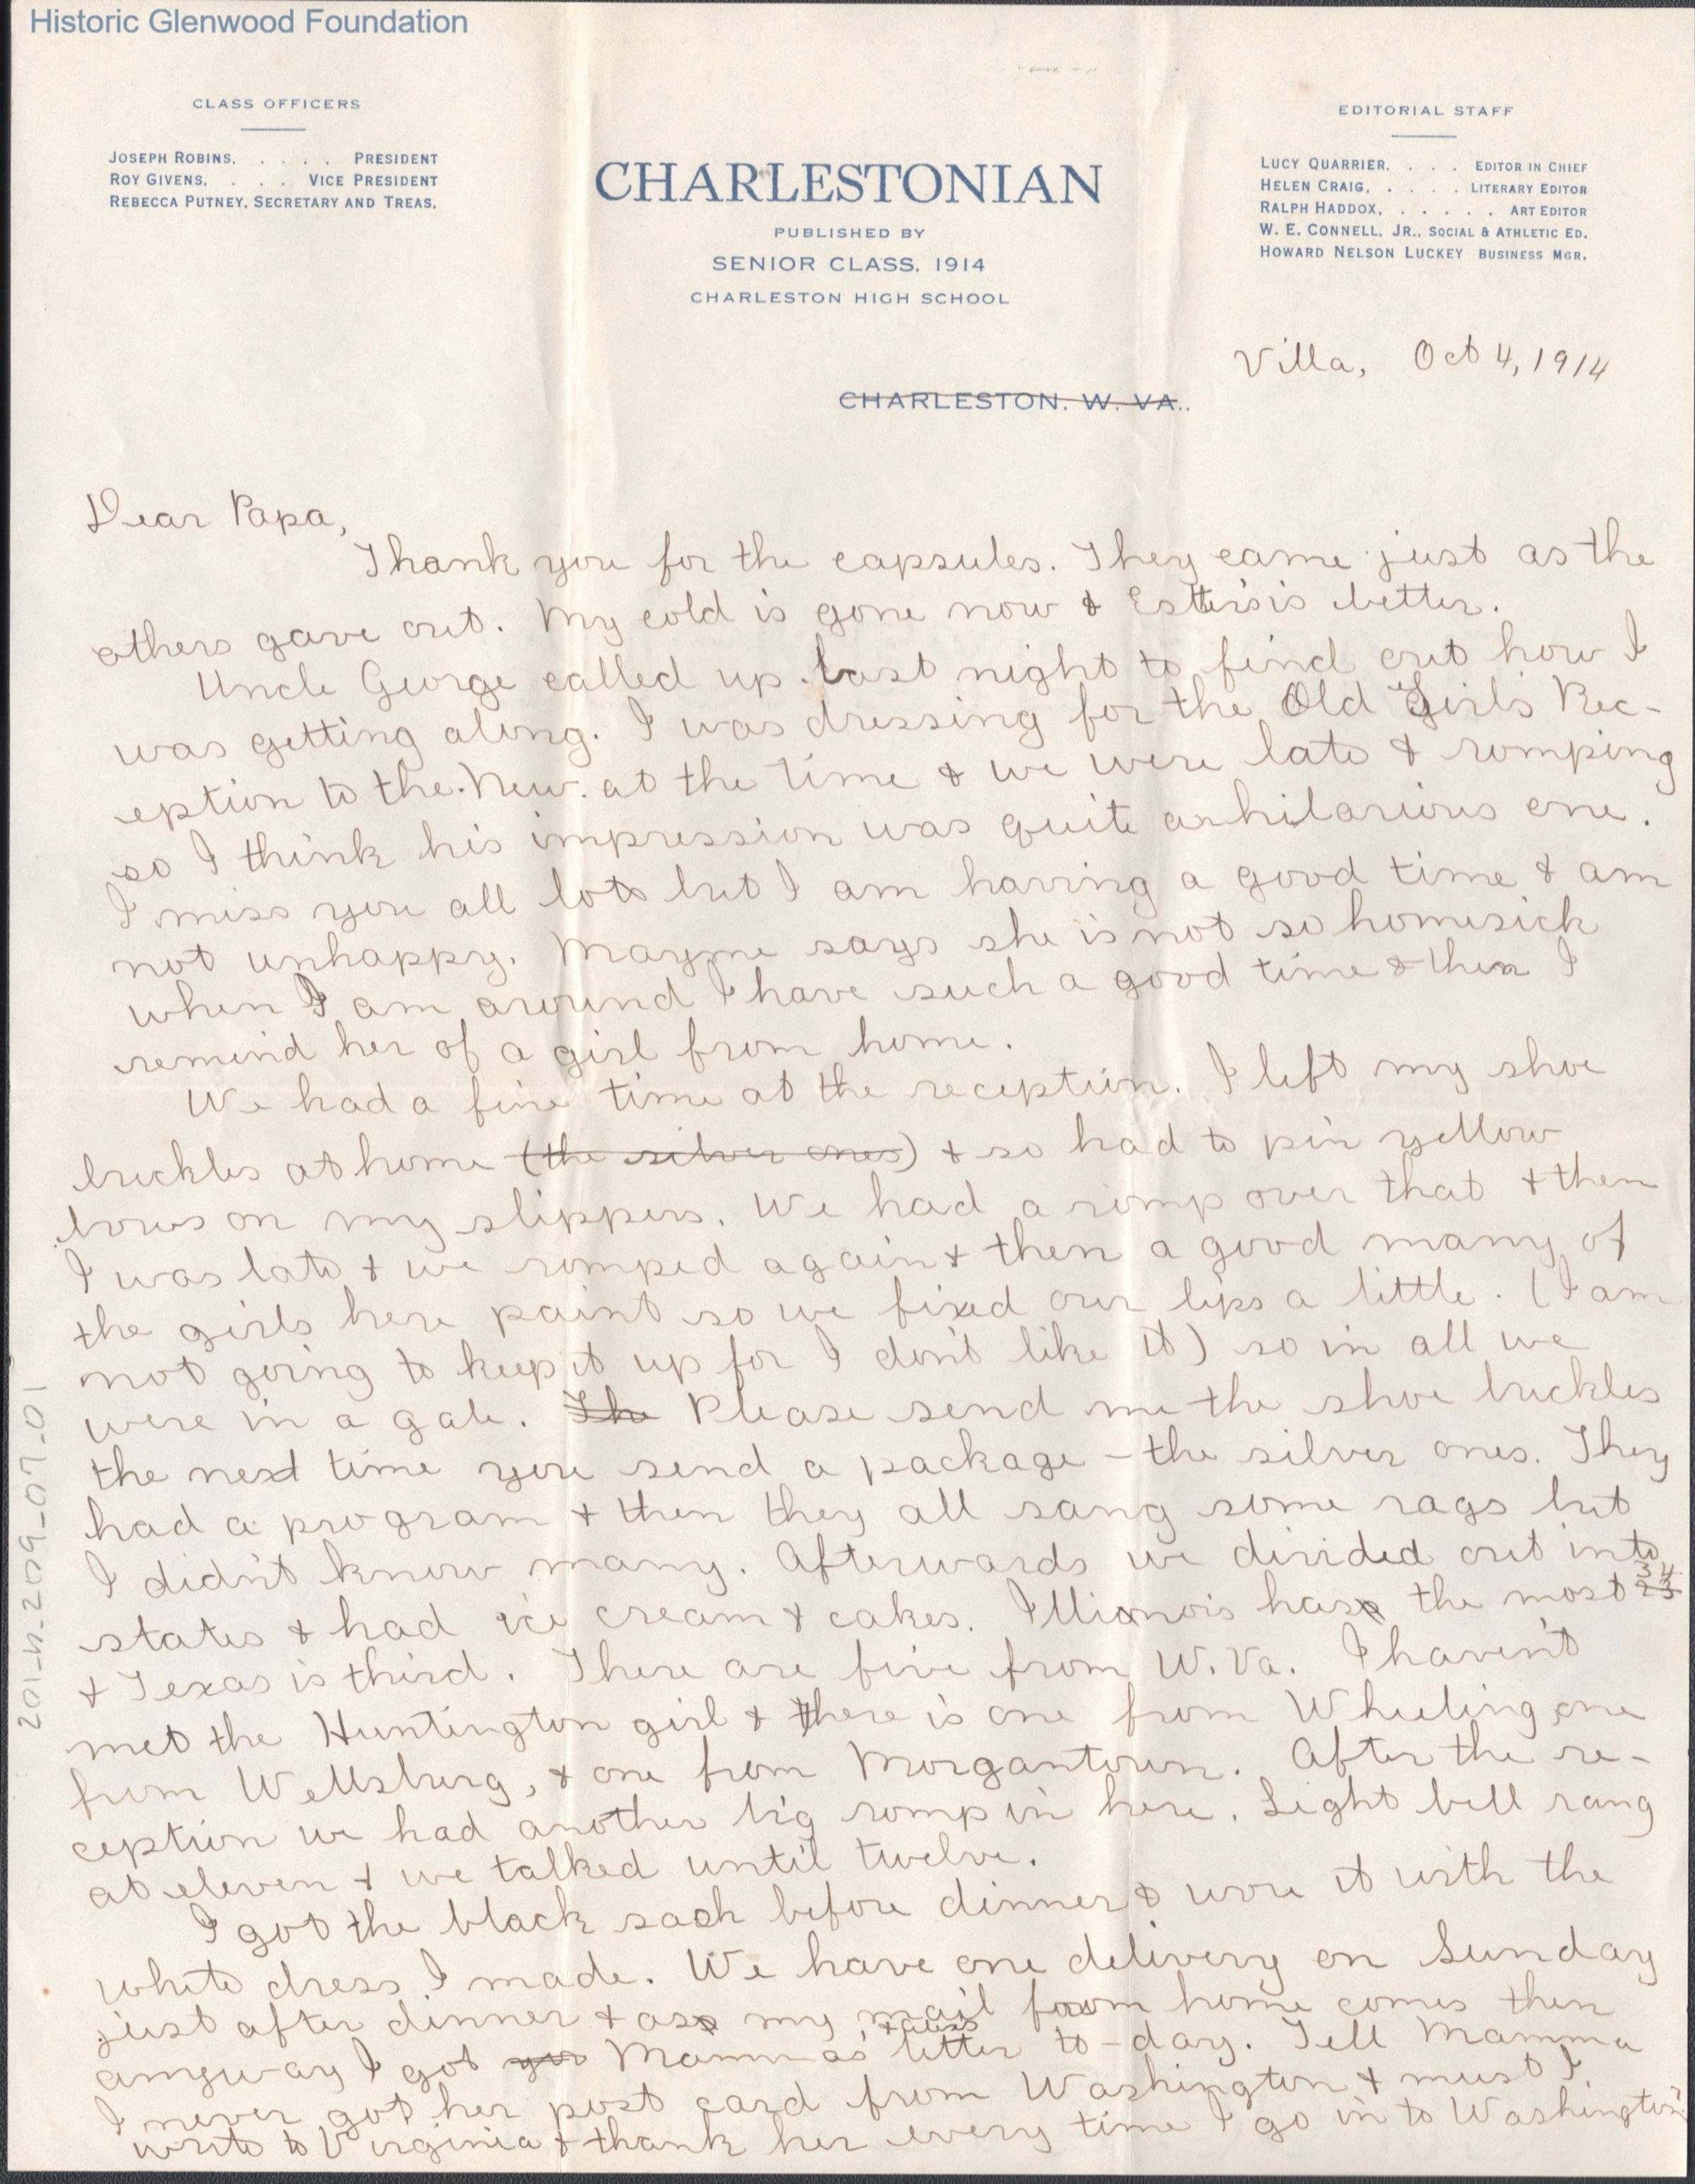 Historic Glenwood Foundation
CLASS OFFICERS
JOSEPH ROBINS. . . . . PRESIDENT
ROY GIVENS. . . . VICE PRESIDENT
REBECCA PUTNEY, SECRETARY AND TREAS.
CHARLESTONIAN
PUBLISHED BY
SENIOR CLASS, 1914
CHARLESTON HIGH SCHOOL
EDITORIAL STAFF
LUCY QUARRIER. . . . EDITOR IN CHIEF
HELEN CRAIG. . . . . LITERARY EDITOR
RALPH HADDOX. . . . . . ART EDITOR
W. E. CONNELL, JR., SOCIAL & ATHLETIC ED.
HOWARD NELSON LUCKEY BUSINESS MGR.
Villa, Oct 4, 1914
CHARLESTON, W. VA..
Dear Papa,
Thank you for the capsules. They came just as the
others gave out. My cold is gone now & Esther's is better.
Uncle George called up last night to find out how I
was getting along. I was dressing for the Old Girls Rec-
eption to the New at the time & we were late & romping
so I think his impression was quite a hilarious one.
I miss you all lots but I am having a good time & am
not unhappy. Mayme says she is not so homesick
when I am around I have such a good time & then I
remind her of a girl from home.
We had a fine time at the reception. I left my shoe
buckles at home (the silver ones) & so had to pin yellow
bows on my slippers. We had a romp over that & then
I was late & we romped again & then a good many of
the girls here paint so we fixed our lips a little. (I am
not going to keep it up for I don't like it) so in all we
were in a gale. The Please send me the shoe buckles
the next time you send a package - the silver ones. They
had a program & then they all sang some rags but
I didn't know many. Afterwards we divided out into
states & had ice cream & cakes. Illinois has the most 34
& Texas is third. There are five from W. Va. I haven't
met the Huntington girl & there is one from Wheeling one
from Wellsburg, & one from Morgantown. After the re-
ception we had another big romp in here. Light bell rang
at eleven & we talked until twelve.
I got the black sash before dinner & wore it with the
white dress I made. We have one delivery on Sunday
just after dinner & as my mail from home comes then
anyway I got Mamma's letter to-day. Tell Mamma
I never got her post card from Washington & must I
write to Virginia & thank her every time I go in to Washington?
2014_209_07_01